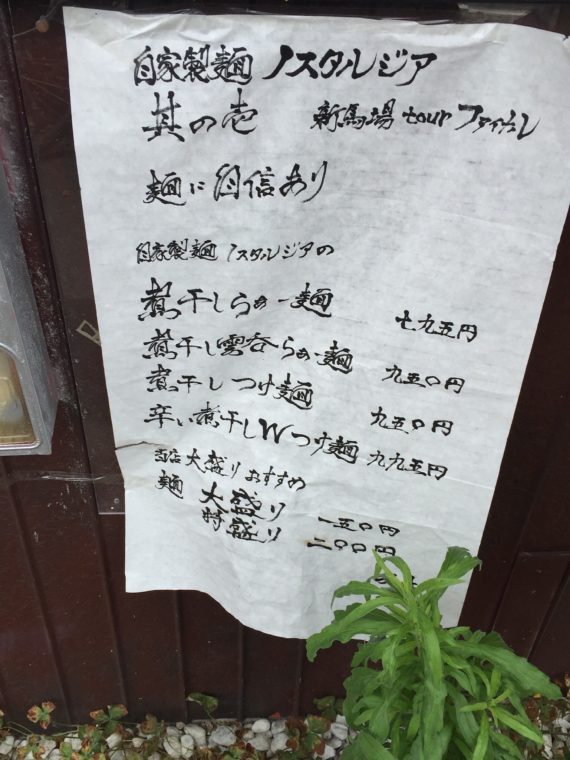 自家製麺 ノスタルジア
其の壱 新馬場 tour ファイナル
麺に自信あり
自家製麺 ノスタルジアの
煮干しらぁー麺 七九五円
煮干し雲呑らぁー麺 九五〇円
煮干しつけ麺 九五〇円
辛い煮干しWつけ麺 九九五円
当店大盛りおすすめ
麺 大盛り 一五〇円
特盛り 二〇〇円